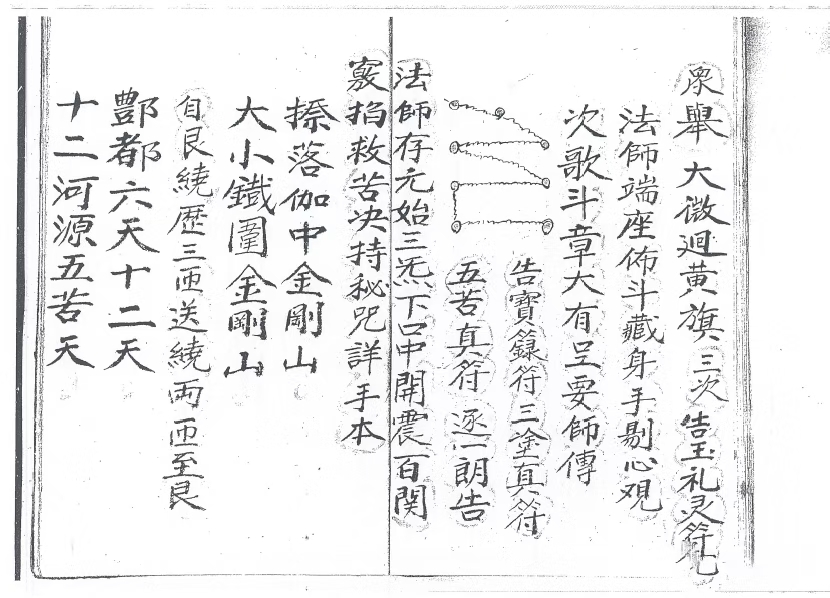 眾舉大微迴黃旗三次告玉礼灵符
法師端座佈斗藏身手剔心观
次歌斗章大有妙要師傳
告寶籙符三塗真符
五苦真符逐一朗告
法師存元始三炁下口中開震百関
竅掐救苦决持秘咒詳手本
㨏落伽中金剛山
大小鐵圍金剛山
自艮繞歷三匝送繞両匝至艮
酆都六天十二天
十二河源五苦天